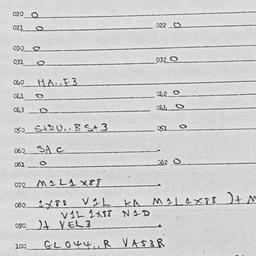 020 O
021 O 022 O
030 O
031 O 032 O
040 HA..F3
041 O 042 O
043 O 044 O
050 S+DU..BS+3 051 O
060 SA C
061 O 062 O
070 M1L1 x88
080 1x88 V1L KA M1L1x88 )+ M
V1L 1x88 N1D
090 )+ VEL3
100 GLO44..R VAS3R